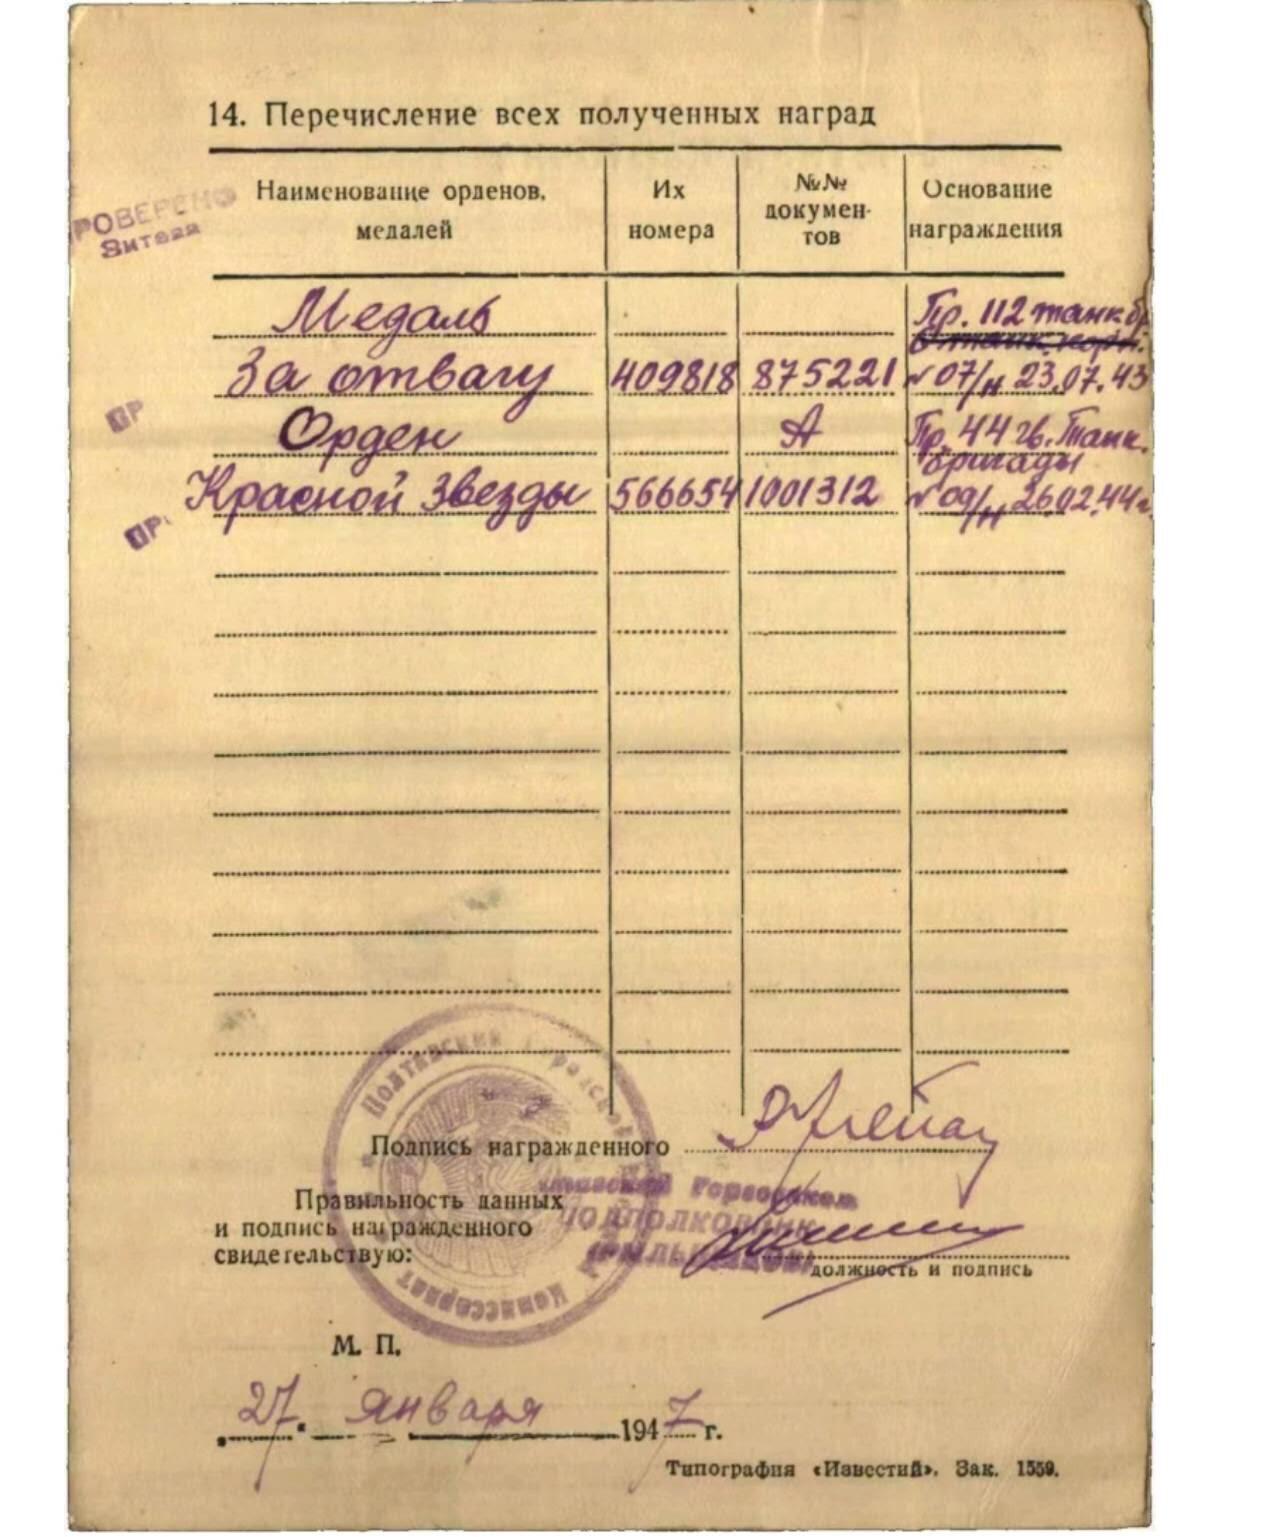 14. Перечисление всех полученных наград
Наименование орденов,
медалей
Их
номера
№№
докумен-
тов
Основание
награждения
РОВЕРЕНО
Медаль
Пр. 112 танк. бр
За отвагу 409818 875221 №07/н 23.07.43
ПР
Орден А Пр. 44 гв. Танк.
бригады
Красной Звезды 566654 1001312 №09/н 26.02.44г.
ПР
Полтавский Городской
Комиссариат
Подпись награжденного
Горвоенком
Правильность данных
и подпись награжденного
свидетельствую:
ПОДПОЛКОВНИК
должность и подпись
М. П.
„27“ января 1947 г.
Типография «Известий». Зак. 1559.